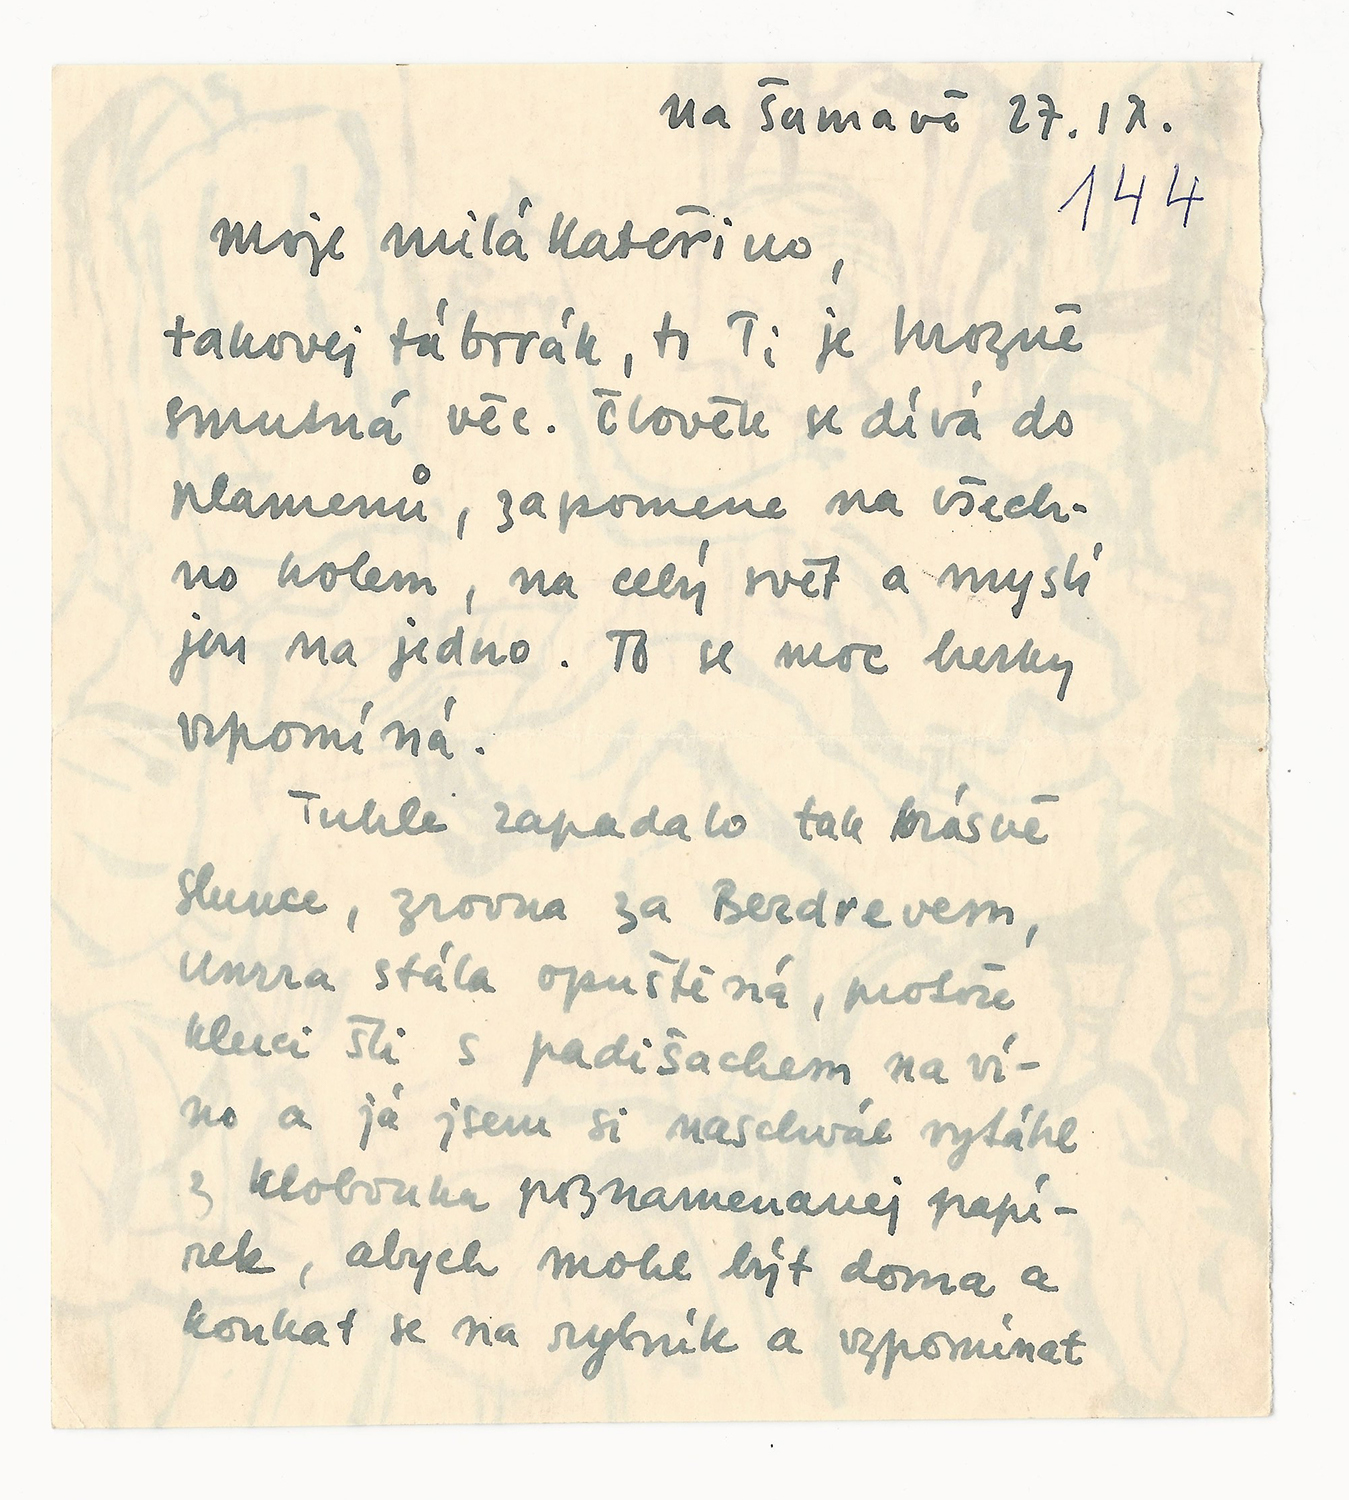 na Šumavě 27. IX.
144
Moje milá Kateřino,
takovej táborák, to Ti je hrozně
smutná věc. Člověk se dívá do
plamenů, zapomene na všech-
no kolem, na celý svět a myslí
jen na jedno. To se moc hezky
vzpomíná.
Tuhle zapadalo tak krásně
slunce, zrovna za Bezdrevem,
Unrra stála opuštěná, protože
kluci šli s padišachem na ví-
no a já jsem si naschvál vytáhl
z klobouku poznamenanej papí-
rek, abych mohl být doma a
koukat se na rybník a vzpomínat